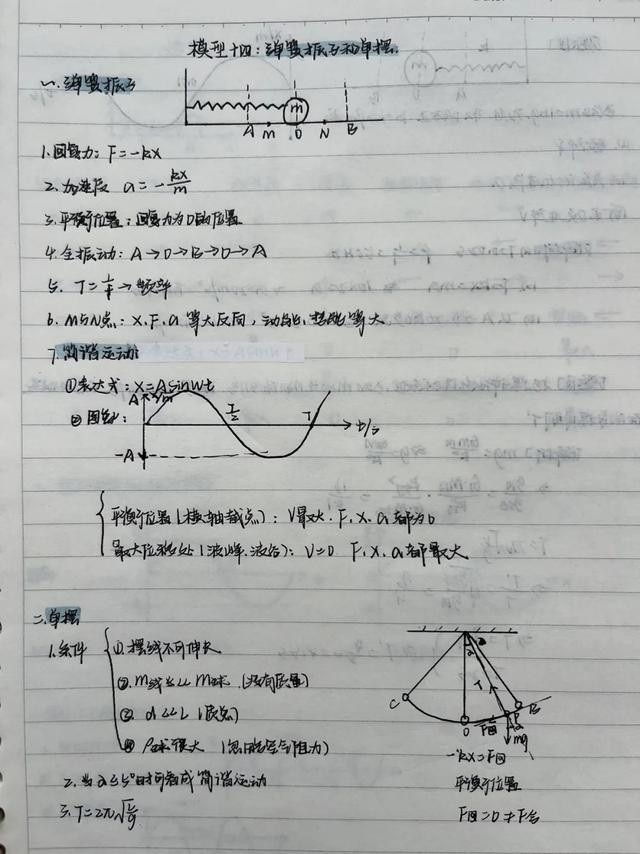 模型十四:弹簧振子和单摆.
一、弹簧振子
m
A M O N B
1.回复力: F=-kx
2.加速度 a=-kx/m
3.平衡位置:回复力为0的位置
4.全振动: A→O→B→O→A
5. T=1/f→频率
6. M与N点: X.F.a 等大反向, 动能、势能等大
7.简谐运动:
①表达式: X=Asinwt
②图象:
A x/m T/2 T t/s
-A
平衡位置(横轴截点): V最大. F、X、a 都为0
最大位移处(波峰、波谷): V=0 F、X、a 都最大
二.单摆
1.条件
①.摆线不可伸长
②.m线≤≤m球 (没有质量)
③.d≤≤L (质点)
④ρ球很大 (忽略空气阻力)
2.当α≤5°时可看成简谐运动
3.T=2π√L/g
C O P B
T F回 mg
-kx=F回
平衡位置
F回=0≠F合